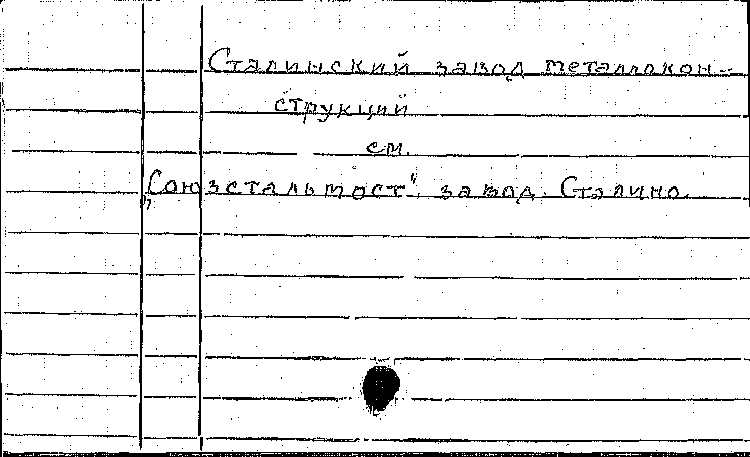 Сталинский завод металлокон-
струкций
см.
„Союзстальмост", завод. Сталино.